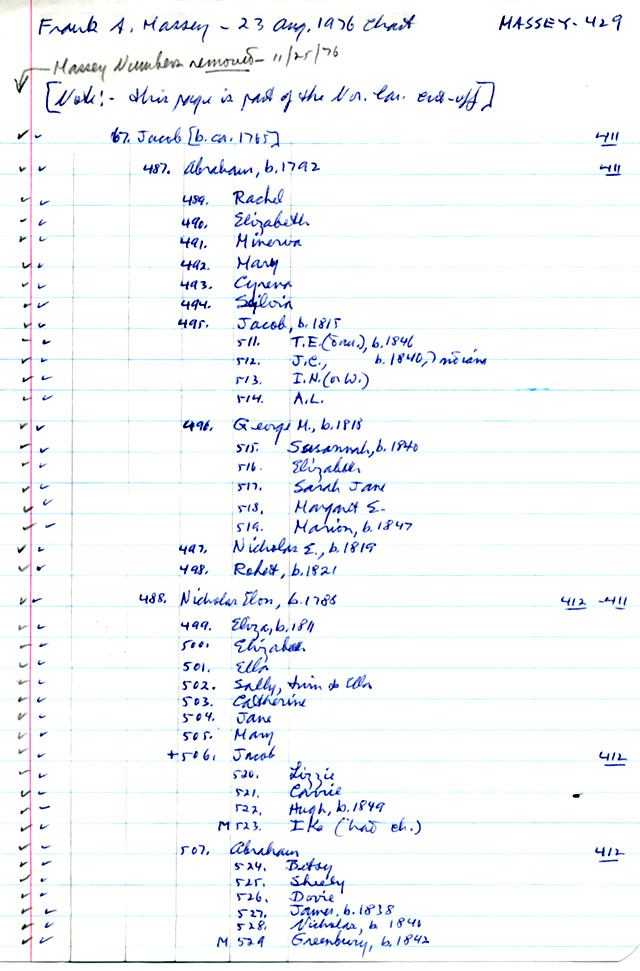 Frank A. Massey - 23 Aug. 1976 Chart MASSEY - 429
Massey Numbers removed - 11/25/76
[Note:- this page is part of the Nor. Car. cut-off]
67. Jacob [b. ca. 1765] 411
487. Abraham, b. 1792 411
489. Rachel
490. Elizabeth
491. Minerva
492. Mary
493. Cyrena
494. Sylvia
495. Jacob, b. 1815
511. T.E. (dau.), b. 1846
512. J.C., b. 1840,
513. I.N. (or W.)
514. A.L.
496. George M., b. 1818
515. Susannah, b. 1840
516. Elizabeth
517. Sarah Jane
518. Margaret E.
519. Marion, b. 1847
497. Nicholas E., b. 1819
498. Robert, b. 1821
488. Nicholas Elon, b. 1786 412 - 411
499. Eliza, b. 1811
500. Elizabeth
501. Ella
502. Sally, twin to Ella
503. Catherine
504. Jane
505. Mary
+506. Jacob 412
520. Lizzie
521. Carrie
522. Hugh, b. 1849
M 523. Ike (had ch.)
507. Abraham 412
524. Betsy
525. Shiely
526. Dovie
527. James, b. 1838
528. Nicholas, b 1840
M 529 Greenbury, b. 1842